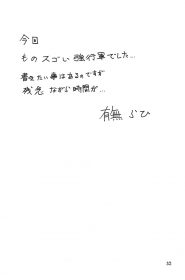 今回
ものスゴい強行軍でした…
書きたい事はあるのですが
残念ながら時間が…
有無らひ
52